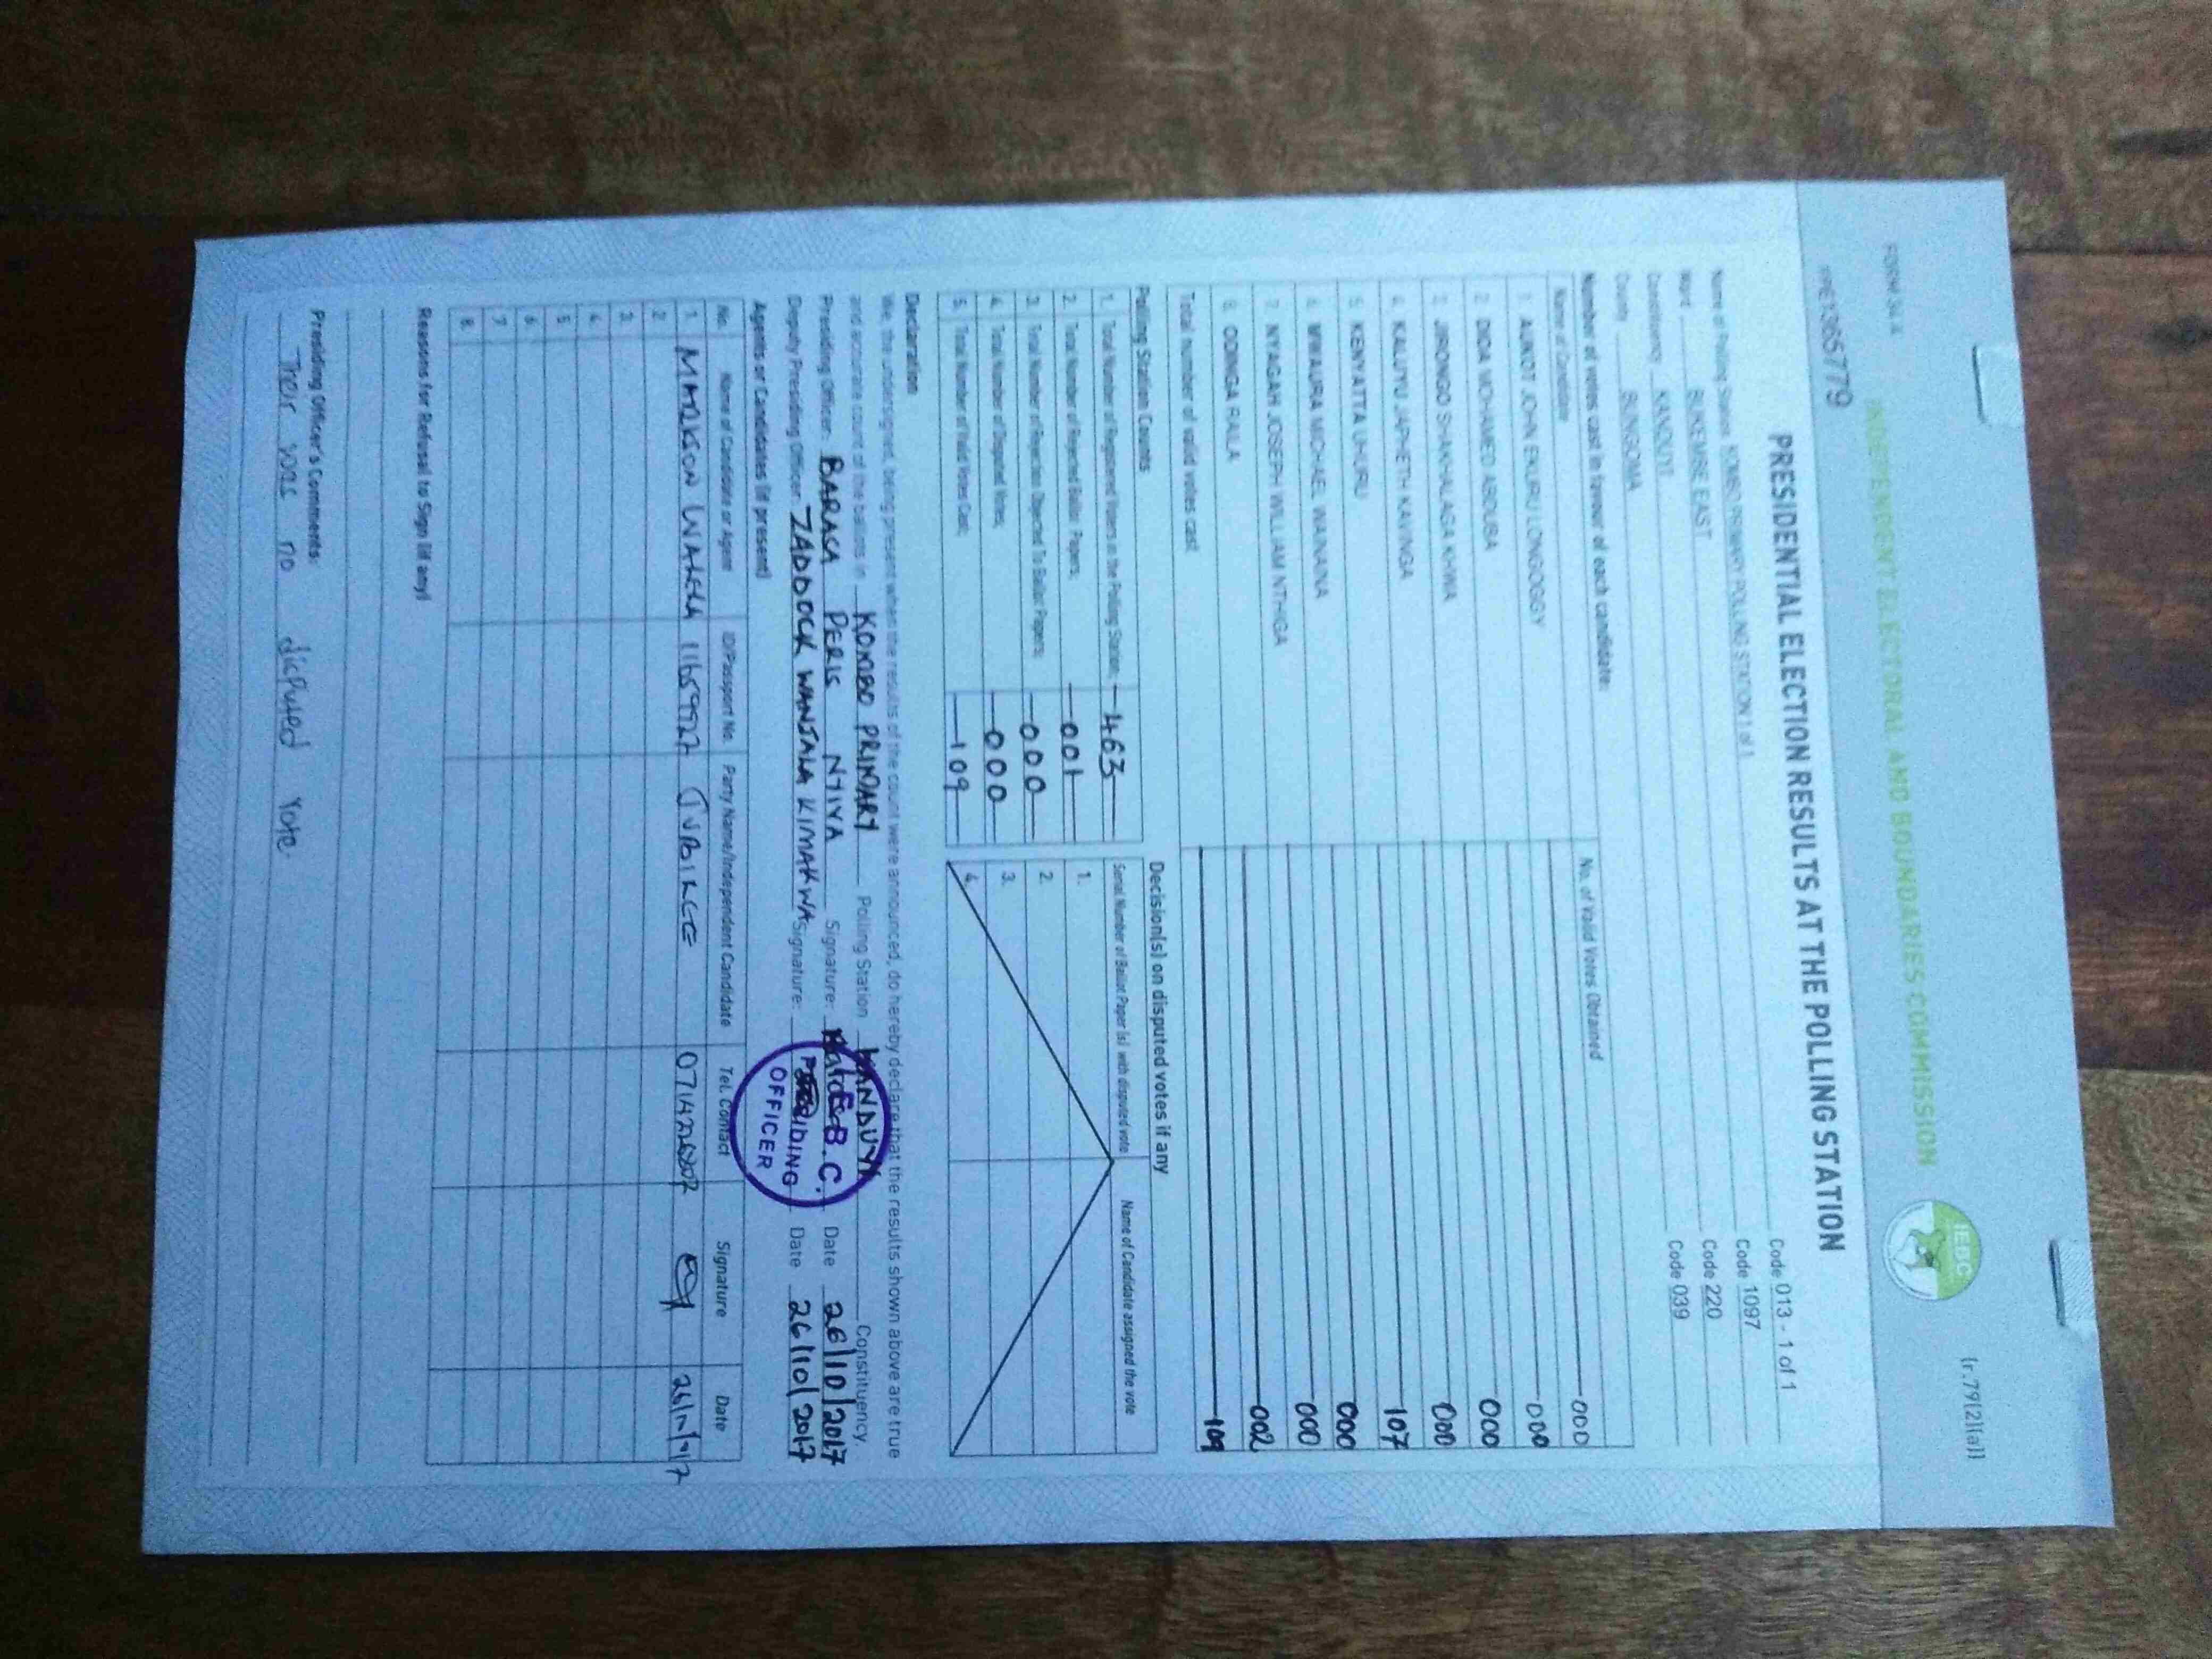 FORM 34 A
(r.79(2)(a))
INDEPENDENT ELECTORAL AND BOUNDARIES COMMISSION
IEBC
PRE1365779
PRESIDENTIAL ELECTION RESULTS AT THE POLLING STATION
Name of Polling Station KOMBO PRIMARY POLLING STATION 1 of 1 Code 013 - 1 of 1
Ward BUKEMBE EAST Code 1097
Constituency KANDUYI Code 220
County BUNGOMA Code 039
Number of votes cast in favour of each candidate:
Name of Candidate No. of Valid Votes Obtained
1. AUKOT JOHN EKURU LONGOGGY 000
2. DIDA MOHAMED ABDUBA 000
3. JIRONGO SHAKHALAGA KHWA 000
4. KALUYU JAPHETH KAVINGA 000
5. KENYATTA UHURU 107
6. MWAURA MICHAEL WAINAINA 000
7. NYAGAH JOSEPH WILLIAM NTHIGA 000
8. ODINGA RAILA 002
Total number of valid votes cast 109
Polling Station Counts
1. Total Number of Registered Voters in the Polling Station; 463
2. Total Number of Rejected Ballot Papers; 001
3. Total Number of Rejection Objected To Ballot Papers; 000
4. Total Number of Disputed Votes; 000
5. Total Number of Valid Votes Cast; 109
Decision(s) on disputed votes if any
Serial Number of Ballot Paper (s) with disputed vote Name of Candidate assigned the vote
1.
2.
3.
4.
Declaration
We, the undersigned, being present when the results of the count were announced, do hereby declare that the results shown above are true
and accurate count of the ballots in KOMBO PRIMARY Polling Station KANDUYI Constituency.
Presiding Officer: BARASA PERIS Signature: Date 26/10/2017
Deputy Presiding Officer: ZADDOCK WANJALA KIMAKWA Signature: Date 26/10/2017
B.C.
PRESIDING
OFFICER
Agents or Candidates (if present)
No. Name of Candidate or Agent ID/Passport No. Party Name/Independent Candidate Tel. Contact Signature Date
1. 11659927 JUBILEE
2.
3.
4.
5.
6.
7.
8.
Reasons for Refusal to Sign (if any)
Presiding Officer's Comments:
Their was no disputed Vote.